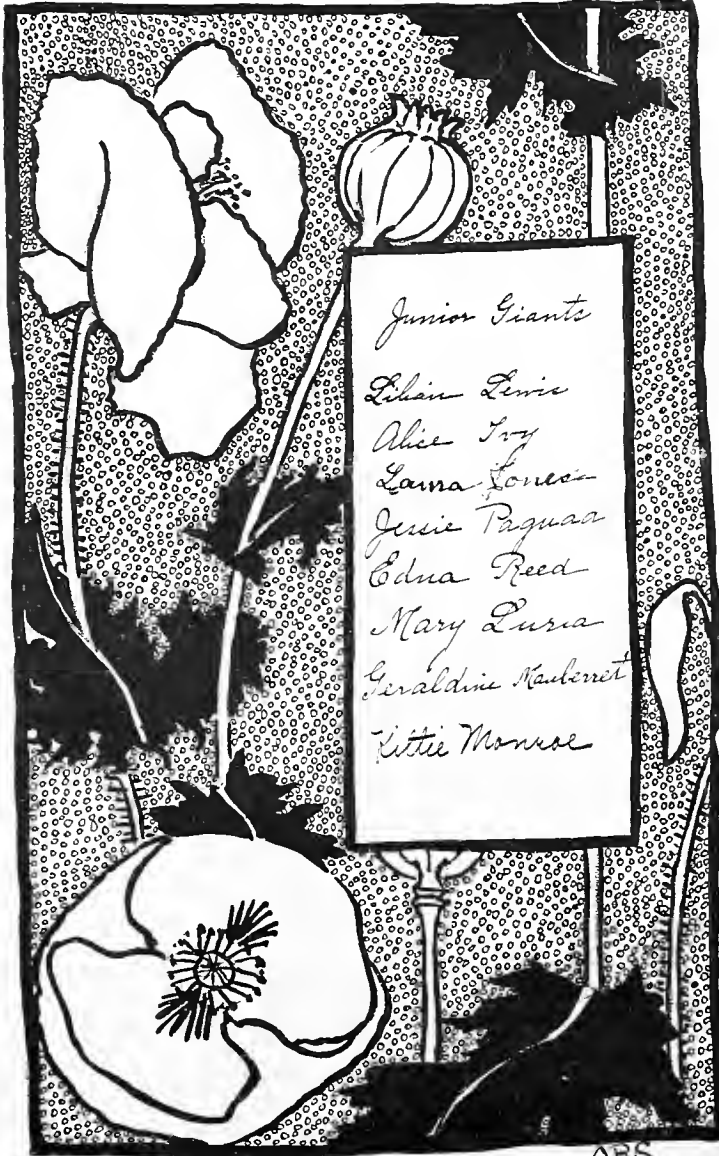 Junior Giants
Lilian Lewis
Alice Ivy
Laura Jones
Jessie Paguaa
Edna Reed
Mary Luria
Geraldine Mauberret
Kittie Monroe
ABS